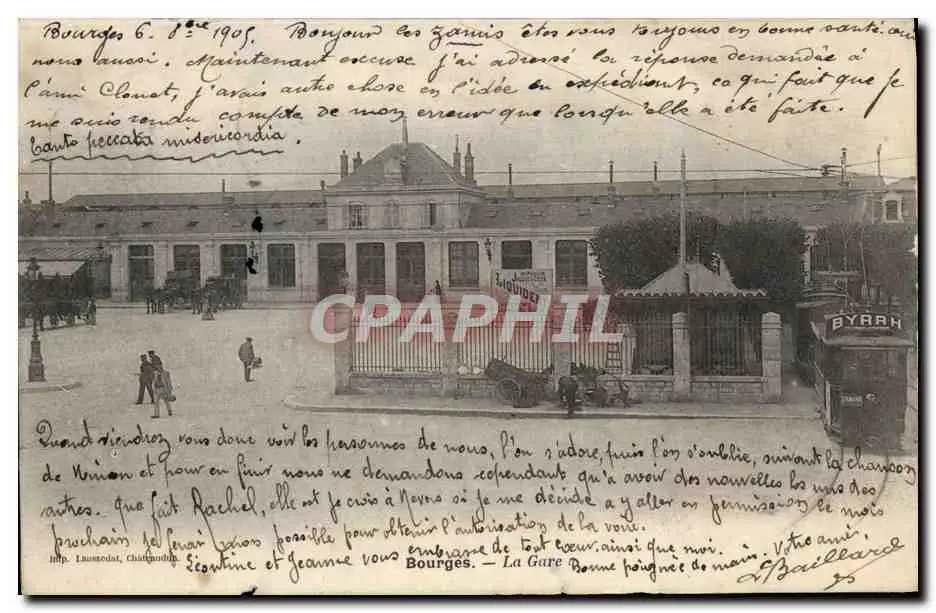 Bourges 6. 8bre 1905. Bonjour les zamis êtes vous toujours en bonne santé. oui
nous aussi. Maintenant excuse j'ai adressé la réponse demandée à
l'ami Clouet, j'avais autre chose en l'idée en expédiant, ce qui fait que je
me suis rendu compte de mon erreur que lorsqu'elle a été faite.
tanto peccata misericordia.
LIQUIDE
BYRRH
CPARAPHIL
Quand viendrez vous donc voir les personnes de nous, l'on s'adore, puis l'on s'oublie, suivant la chanson
de Ninon et pour en finir nous ne demandons cependant qu'a avoir des nouvelles les uns des
autres. Que fait Rachel, elle est je crois à Nevers si je me décide a y aller en permission le mois
prochain je ferai mon possible pour obtenir l'autorisation de la voir.
Léontine et Jeanne vous embrasse de tout cœur. ainsi que moi.
Bonne poignée de main. Votre ami.
LBaillard
Imp. Laussedat, Châteaudun.
Bourges. — La Gare